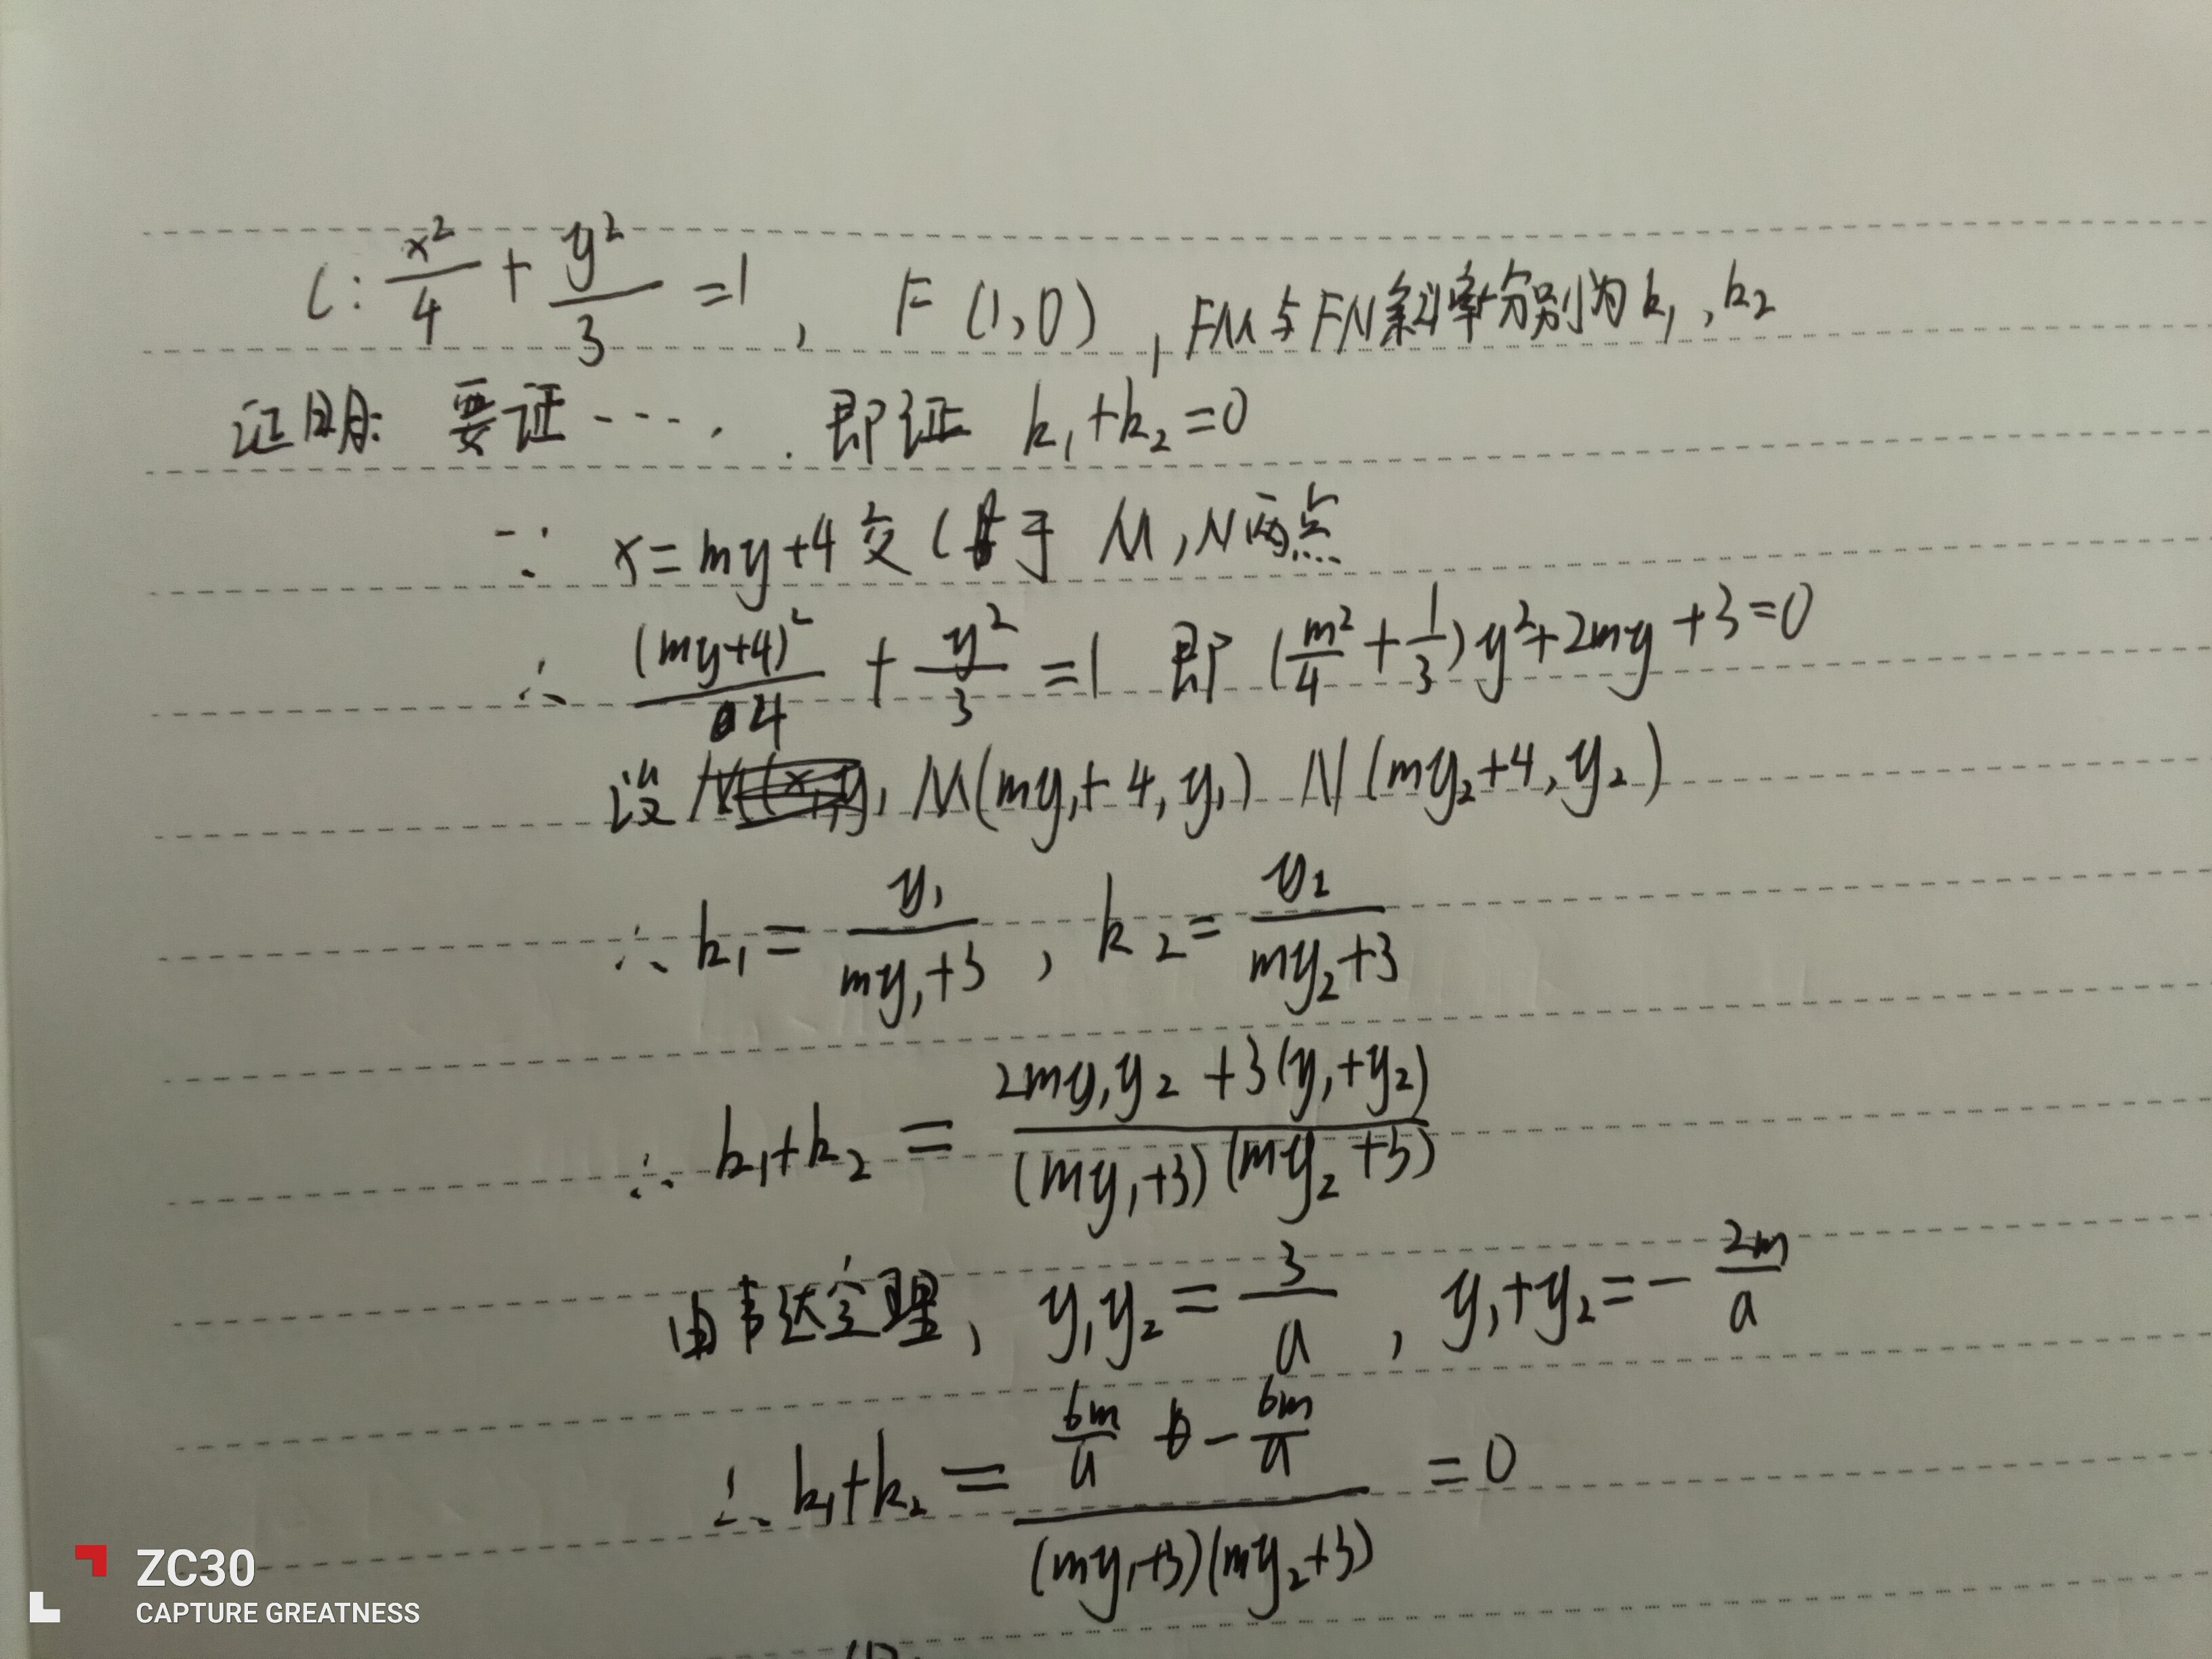 C: x²/4 + y²/3 =1, F(1,0), FM与FN斜率分别为k₁,k₂
证明: 要证……. 即证 k₁+k₂=0
∵ x=my+4交C于 M,N两点
∴ (my+4)²/4 + y²/3 =1 即 (m²/4+1/3)y²+2my+3=0
设 M(my₁+4,y₁) N(my₂+4,y₂)
∴ k₁= y₁/(my₁+3), k₂= y₂/(my₂+3)
∴ k₁+k₂ = (2my₁y₂+3(y₁+y₂))/((my₁+3)(my₂+3))
由韦达定理, y₁y₂= 3/a, y₁+y₂=-2m/a
∴ k₁+k₂ = (6m/a - 6m/a)/((my₁+3)(my₂+3)) =0
ZC30
CAPTURE GREATNESS